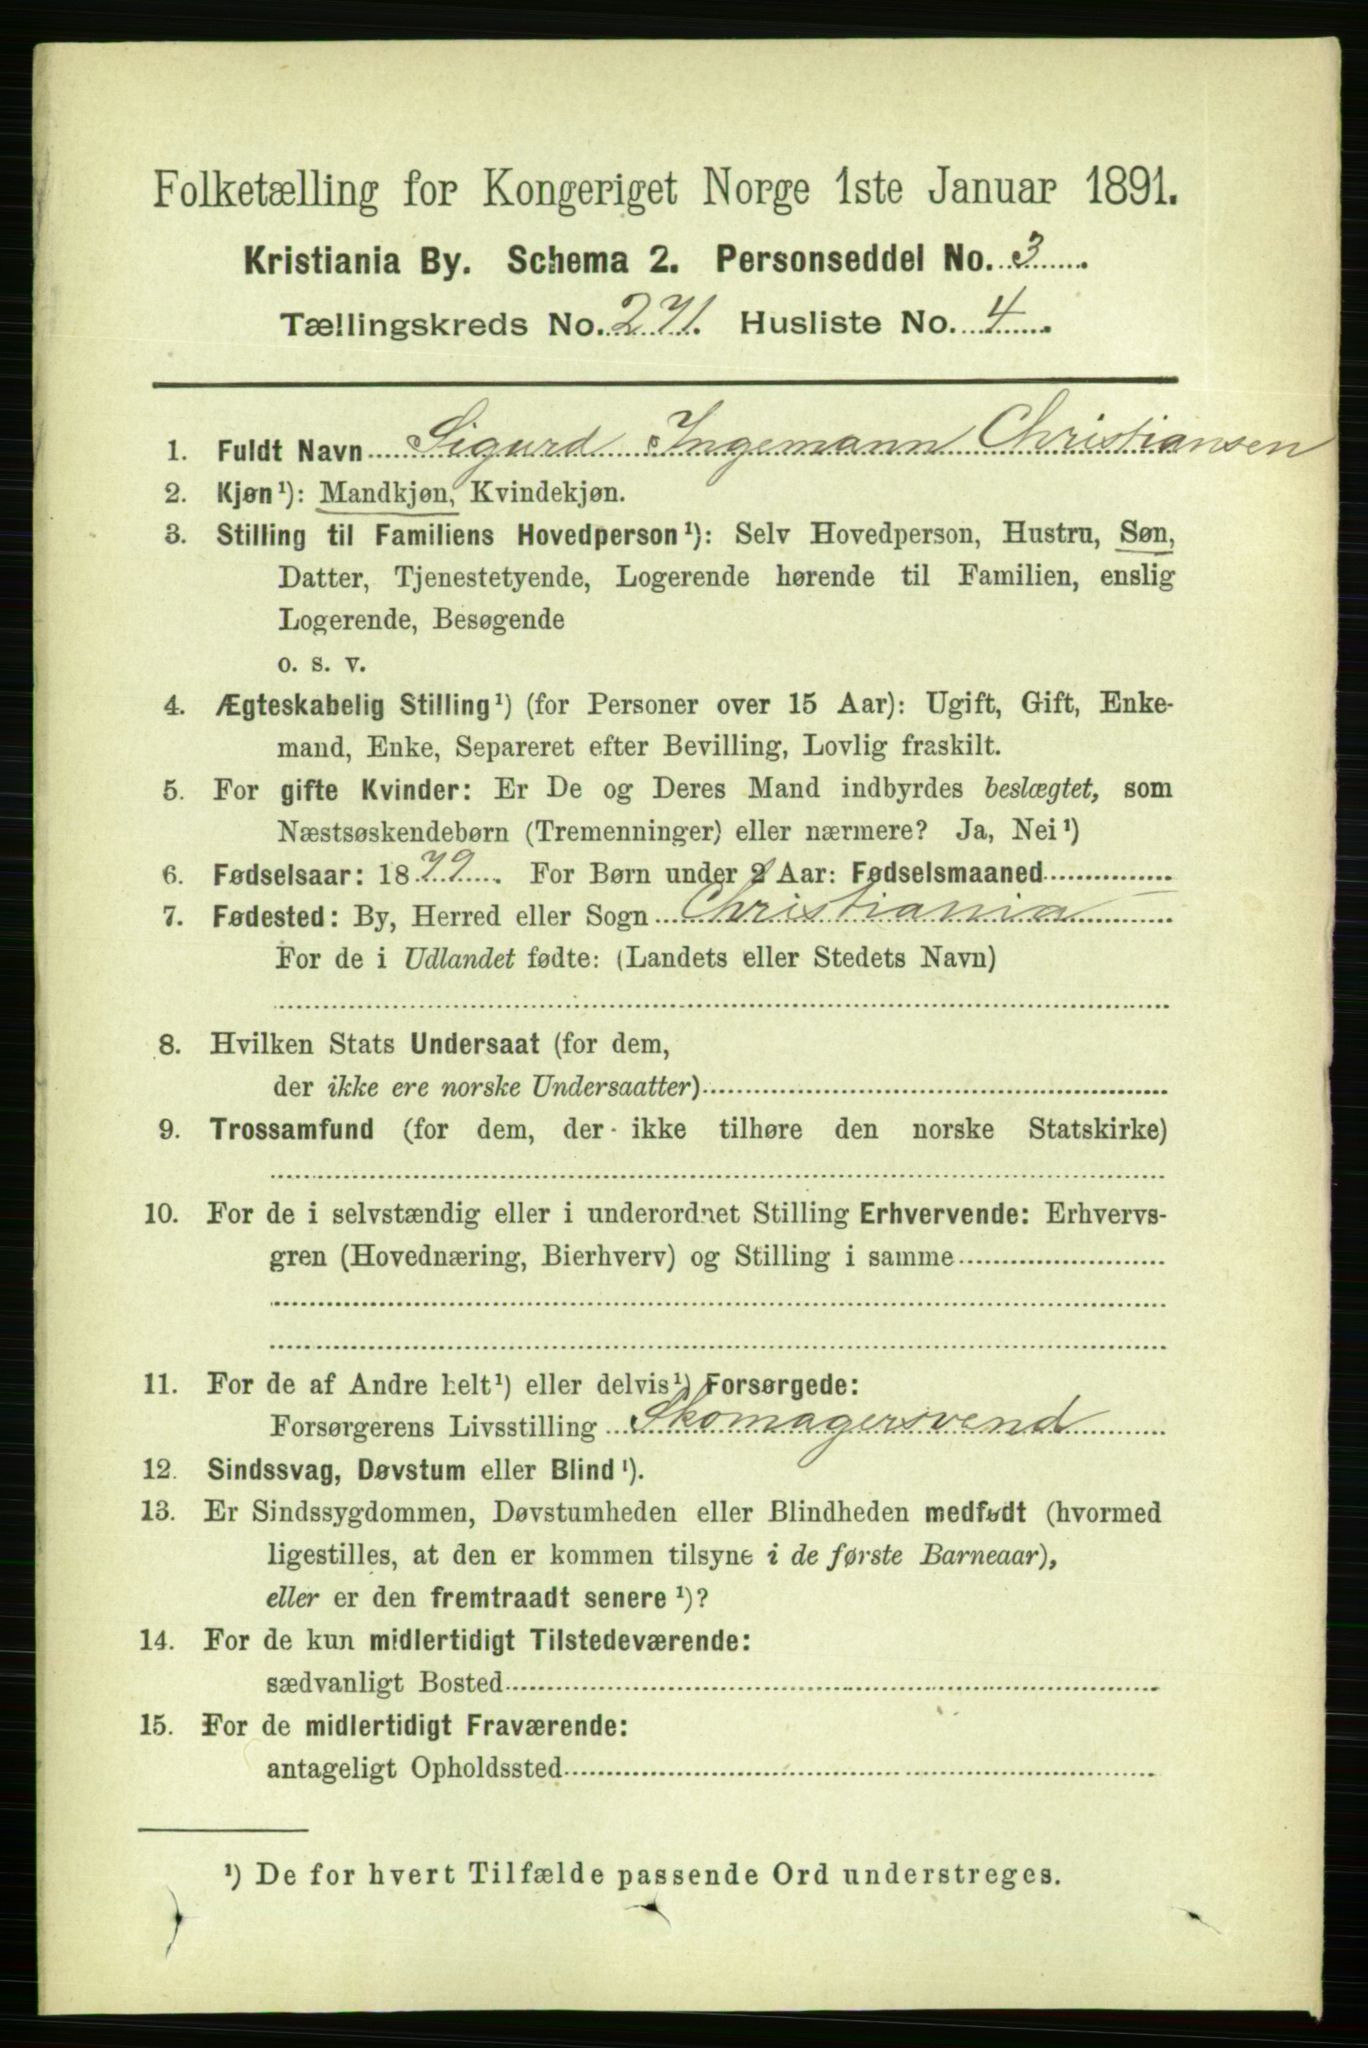 Folketælling for Kongeriget Norge 1ste Januar 1891.
Kristiania By. Schema 2. Personseddel No. 3
Tællingskreds No. 271. Husliste No. 4
1. Fuldt Navn Sigurd Ingemann Christiansen
2. Kjøn¹): Mandkjøn, Kvindekjøn.
3. Stilling til Familiens Hovedperson¹): Selv Hovedperson, Hustru, Søn,
Datter, Tjenestetyende, Logerende hørende til Familien, enslig
Logerende, Besøgende
o. s. v.
4. Ægteskabelig Stilling¹) (for Personer over 15 Aar): Ugift, Gift, Enke-
mand, Enke, Separeret efter Bevilling, Lovlig fraskilt.
5. For gifte Kvinder: Er De og Deres Mand indbyrdes beslægtet, som
Næstsøskendebørn (Tremenninger) eller nærmere? Ja, Nei¹)
6. Fødselsaar: 1879. For Børn under 2 Aar: Fødselsmaaned
7. Fødested: By, Herred eller Sogn Christiania
For de i Udlandet fødte: (Landets eller Stedets Navn)
8. Hvilken Stats Undersaat (for dem,
der ikke ere norske Undersaatter)
9. Trossamfund (for dem, der ikke tilhøre den norske Statskirke)
10. For de i selvstændig eller i underordnet Stilling Erhvervende: Erhvervs-
gren (Hovednæring, Bierhverv) og Stilling i samme
11. For de af Andre helt¹) eller delvis¹) Forsørgede:
Forsørgerens Livsstilling Skomagersvend
12. Sindssvag, Døvstum eller Blind¹).
13. Er Sindssygdommen, Døvstumheden eller Blindheden medfødt (hvormed
ligestilles, at den er kommen tilsyne i de første Barneaar),
eller er den fremtraadt senere¹)?
14. For de kun midlertidigt Tilstedeværende:
sædvanligt Bosted
15. For de midlertidigt Fraværende:
antageligt Opholdssted
¹) De for hvert Tilfælde passende Ord understreges.